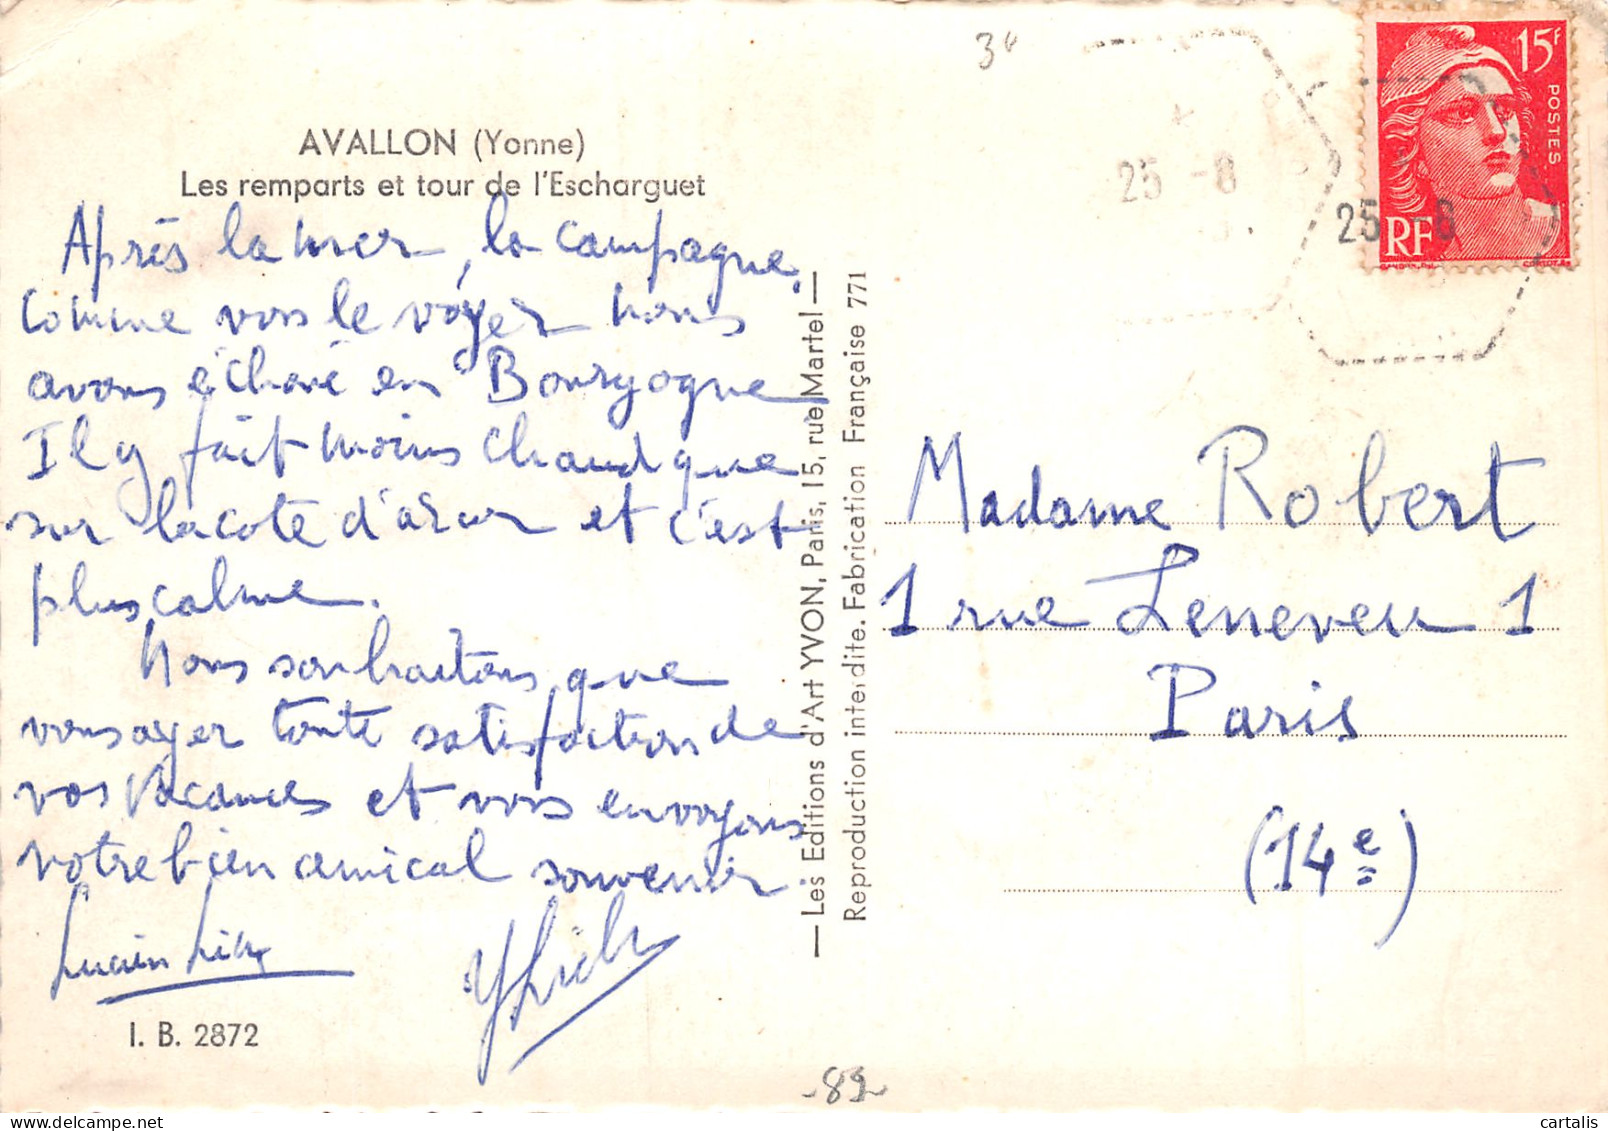 AVALLON (Yonne)
Les remparts et tour de l'Escharguet
Après la mer, la campagne,
comme vous le voyez nous
avons échoué en Bourgogne
Il y fait moins chaud que
sur la cote d'azur et c'est
plus calme.
Nous souhaitons que
vous ayez toute satisfaction de
vos vacances et vous envoyons
votre bien amical souvenir
Lucien
I. B. 2872
— Les Editions d'Art YVON, Paris, 15, rue Martel —
Reproduction interdite. Fabrication Française 771
3€
25 -8
25 -8
15F
POSTES
RF
Madame Robert
1 rue Leneveu 1
Paris
(14e)
-89-
cartalis
delcampe.net